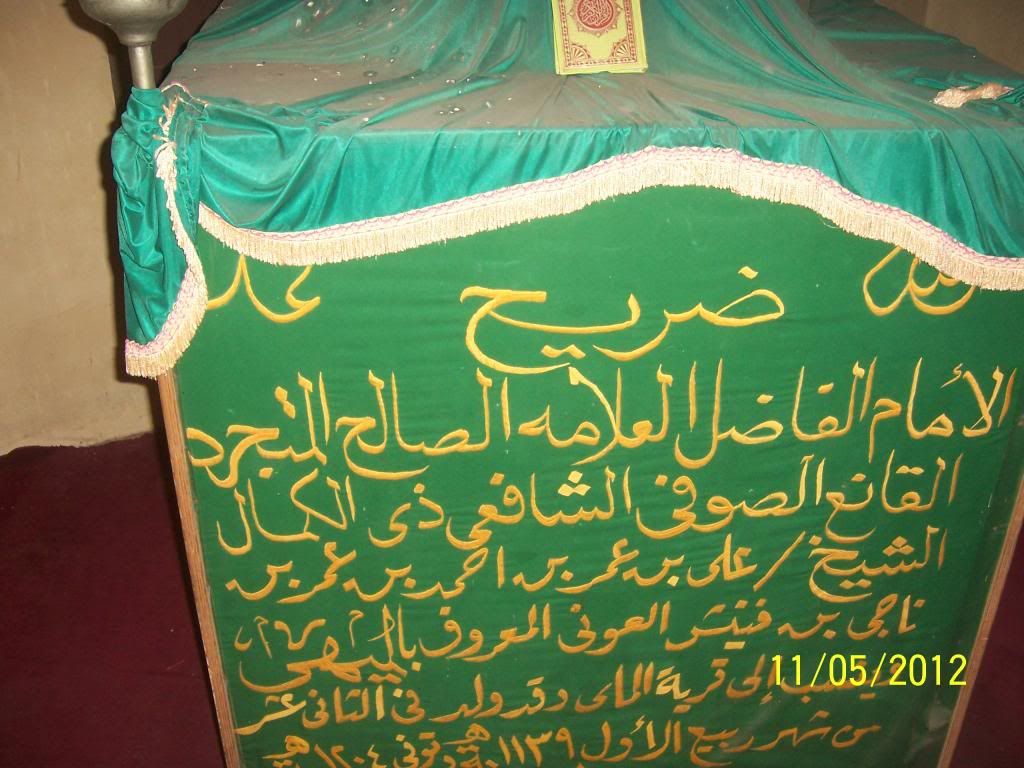 الله
محمد
ضريح
الأمام الفاضل العلامه الصالح المتجرد
القانع الصوفى الشافعى ذى الكمال
الشيخ / على بن عمر بن احمد بن عمر بن
ناجى بن فنيش العونى المعروف بالميهى
ينسب إلى قرية الماى وقد ولد فى الثانى عشر
من شهر ربيع الأول ١١٣٩ هـ وتوفى ١٢٠٤ هـ
11/05/2012